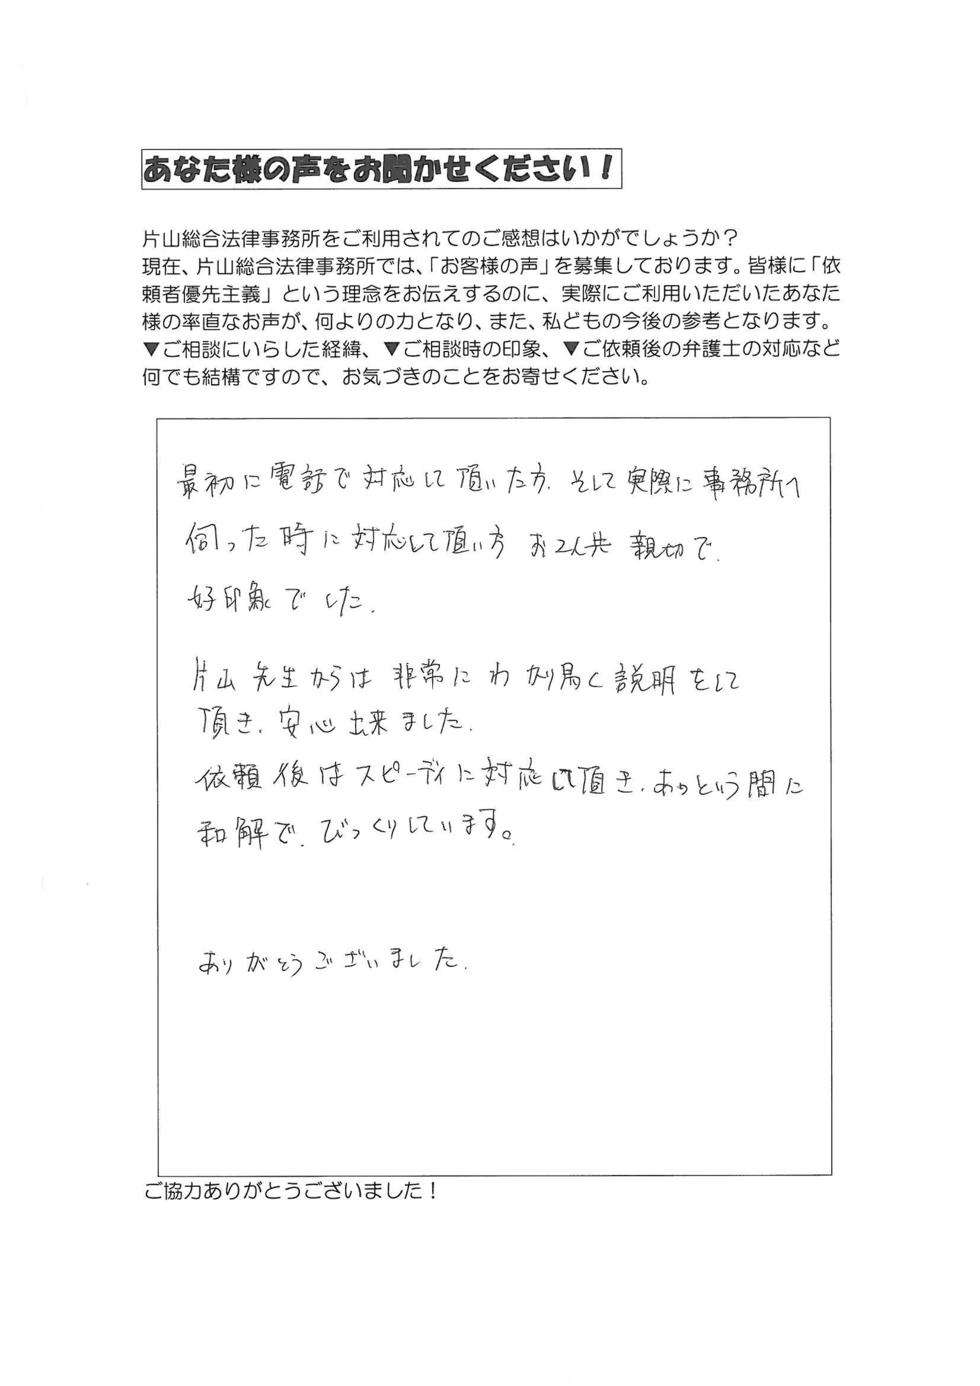 あなた様の声をお聞かせください！
片山総合法律事務所をご利用されてのご感想はいかがでしょうか？
現在、片山総合法律事務所では、「お客様の声」を募集しております。皆様に「依
頼者優先主義」という理念をお伝えするのに、実際にご利用いただいたあなた
様の率直なお声が、何よりの力となり、また、私どもの今後の参考となります。
▼ご相談にいらした経緯、▼ご相談時の印象、▼ご依頼後の弁護士の対応など
何でも結構ですので、お気づきのことをお寄せください。
最初に電話で対応して頂いた方、そして実際に事務所へ
伺った時に対応して頂い方 お2人共 親切で、
好印象でした。
片山先生からは非常にわかり易く説明をして
頂き、安心出来ました。
依頼後はスピーディに対応して頂き、あっという間に
和解で、びっくりしています。
ありがとうございました。
ご協力ありがとうございました！